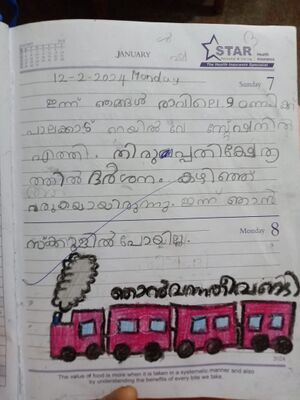 STAR Health Insurance
The Health Insurance Specialist
JANUARY
12-2-2024 Monday
Sunday 7
ഇന്ന് ഞങ്ങൾ രാവിലെ 9 മണിക്ക്
പാലക്കാട് റെയിൽവേ സ്റ്റേഷനിൽ
എത്തി. തിരുപ്പതിക്ഷേത്ര
ത്തിൽ ദർശനം കഴിഞ്ഞ്
വരുകയായിരുന്നു. ഇന്ന് ഞാൻ
Monday 8
സ്ക്കൂളിൽ പോയില്ല.
ഞാൻവന്നതീവണ്ടി
2024
The value of food is more when it is taken in a systematic manner and also
by understanding the benefits of every bite we take.